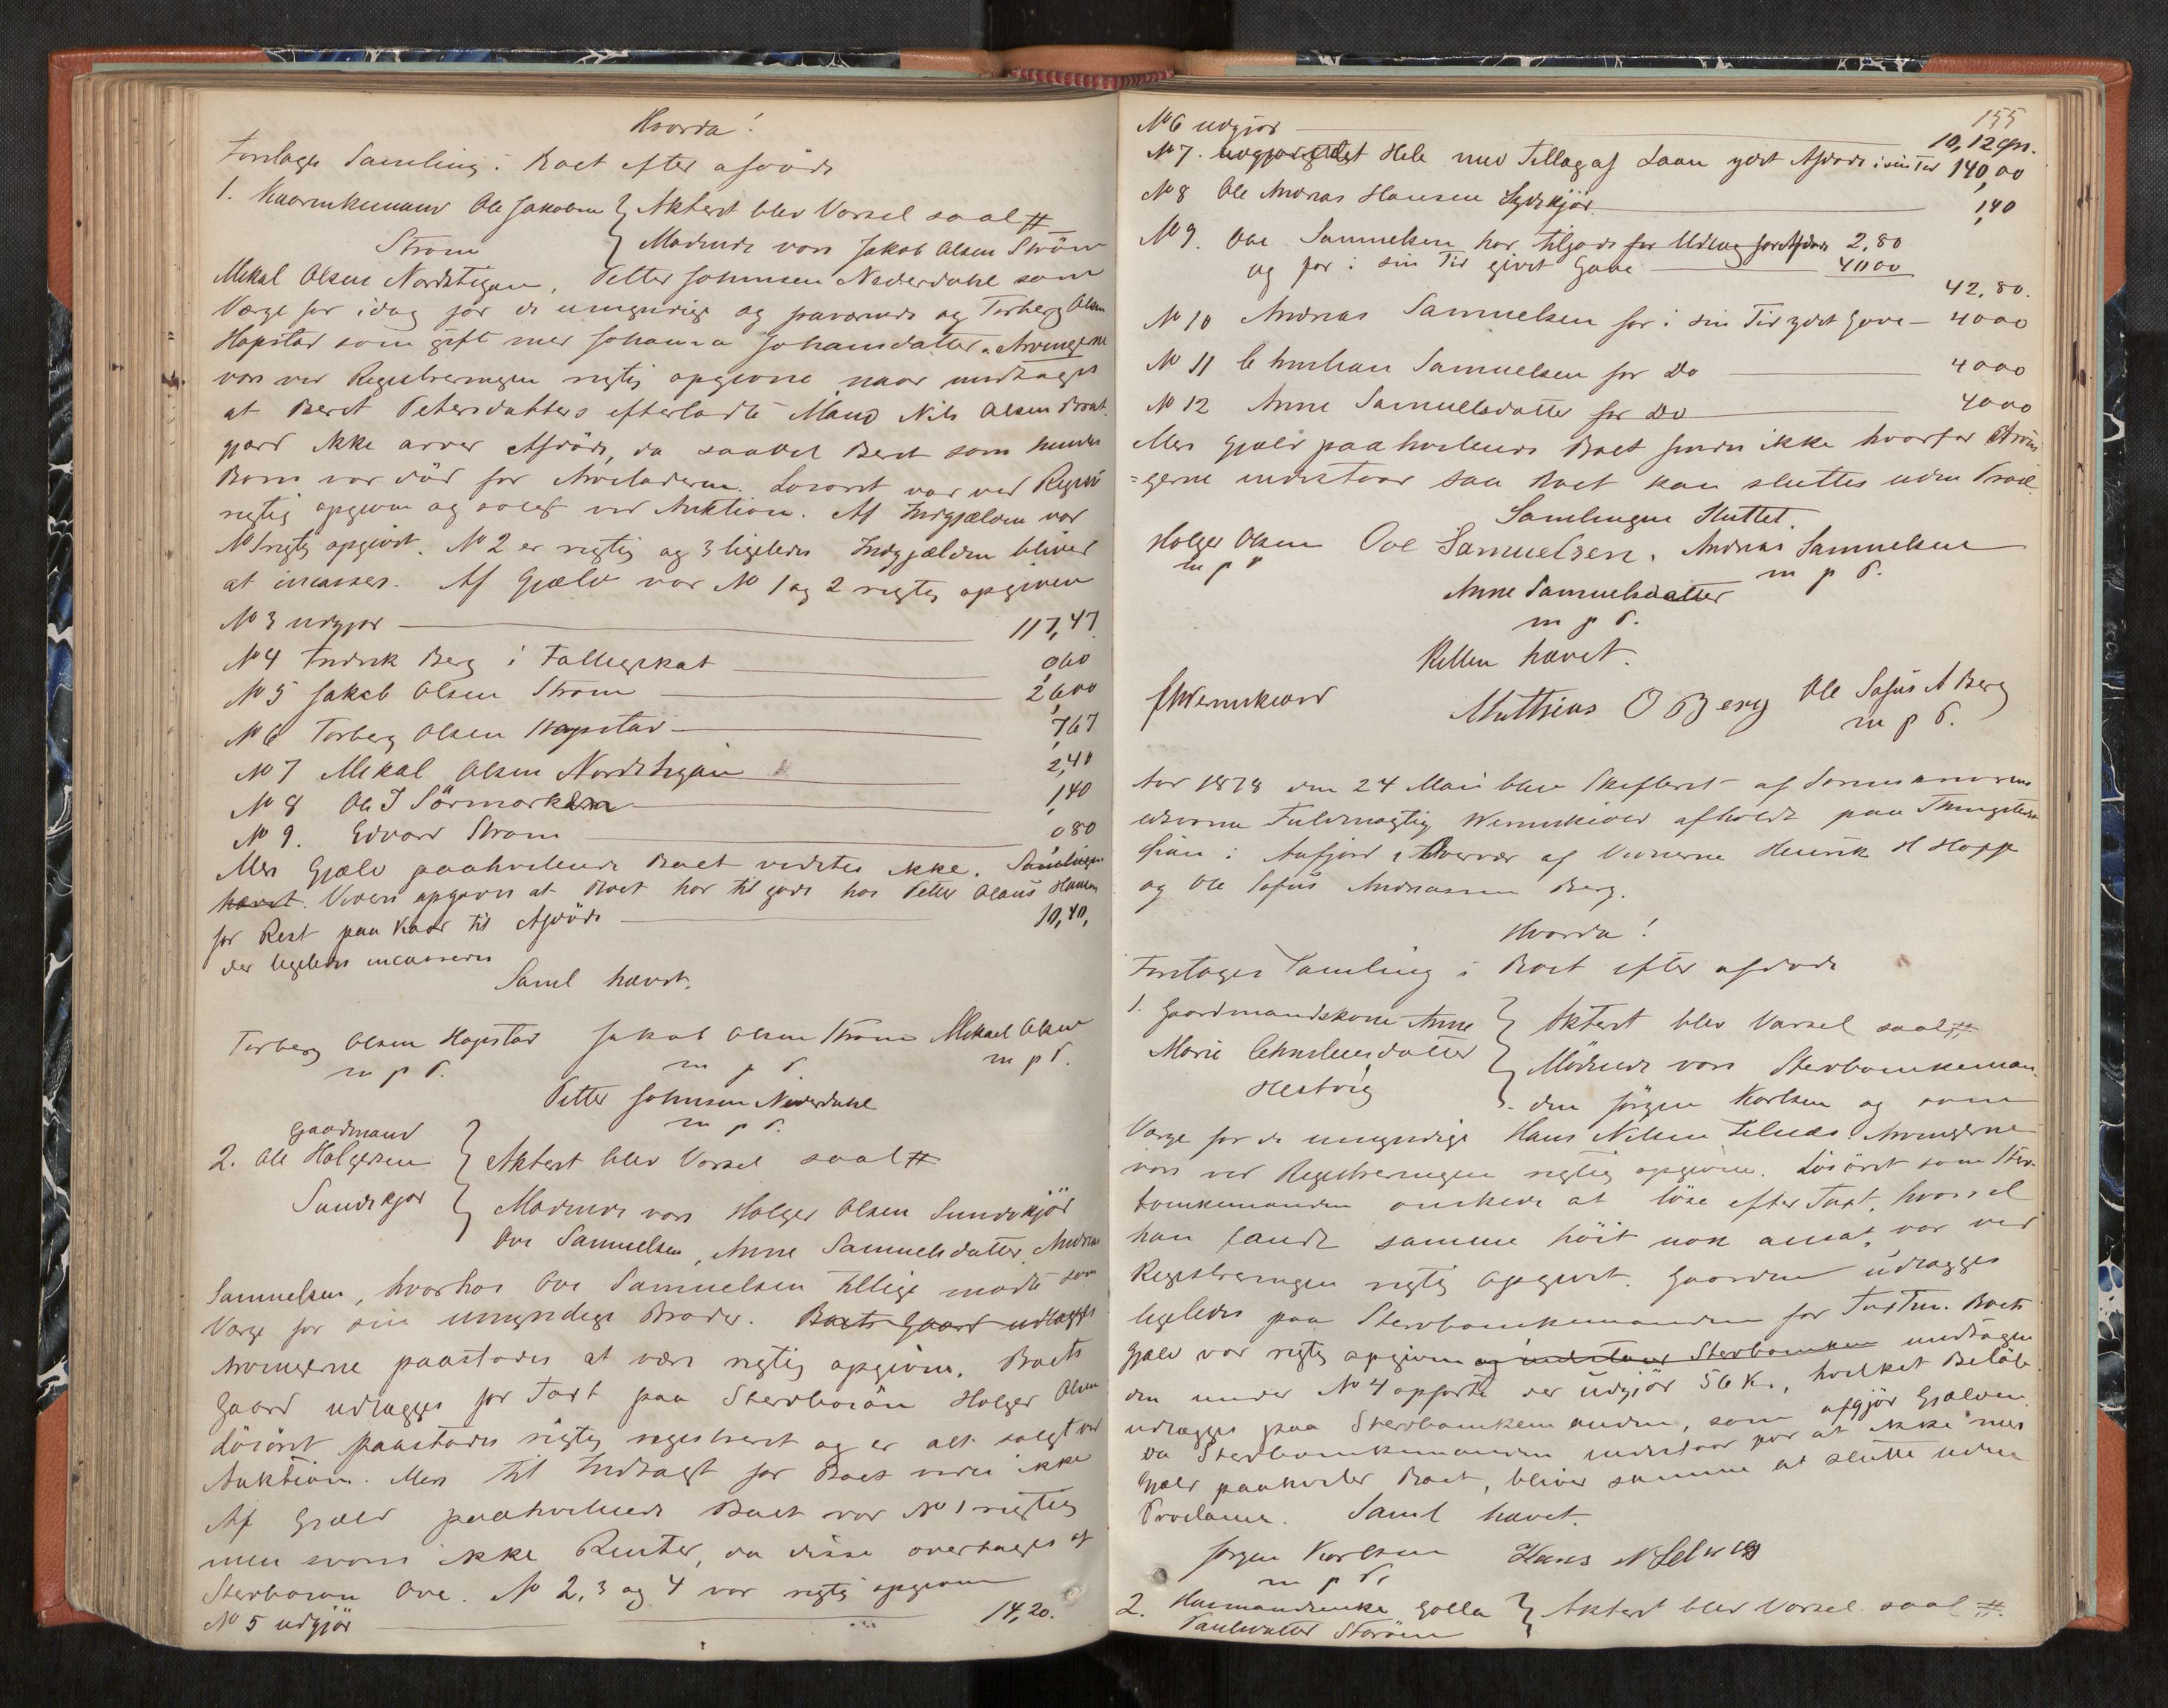 Hvorda!
Foretages Samling i Boet efter afdöde
1. Kaarmkemand Ole Jakobsen } Aktert blev Varsel saal #
Strøm } Mødende vare Jakob Olsen Ström
Mikal Olsen Nordstigen, Petter Johnsen Nederdahl som
Værge for idag for de umyndige og fraværende og Torberg Olsen
Hopstad som gift med Johanna Johansdatter. Arvingerne
vare ved Registreringen rigtig opgivne naar undtages
at Beret Petersdatters efterladte Mand Nils Olsen
gjærd ikke arver Afdöde, da saavel Beret som hendes
Barn var död for Arveladeren. Lösöret var ved Registr
rigtig opgiven og solgt ved Auktion. Af Indgjælden var
No 1 rigtig opgivet. No 2 er rigtig og 3 ligeledes Indgjælden bliver
at incassere. Af Gjæld var No 1 og 2 rigtig opgiven
No 3 udgjør 117,47
No 4 Fredrik Berg i Fattigskat 0,60
No 5 Jakob Olsen Strøm 26,00
No 6 Torberg Olsen Hopstad 7,67
No 7 Mikal Olsen Nordstigen 2,40
No 8 Ole J Sörmarken 1,40
No 9. Edvard Strøm 0 80
Mere Gjæld paahvilende Boet vidstes ikke. Samlingen
hævet. Videre opgaves at Boet har til gode hos Petter Olaus Hansen
for Rest paa Kaar til Afdöde 10,40,
der ligeledes incasseres
Saml hævet.
Torberg Olsen Hopstad Jakob Olsen Strøm Mikael Olsen
m p P. m p P m p P.
Petter Johnsen Nederdahl
m p P.
Gaardmand
2. Ole Holgersen } Aktert blev Varsel saal #
Sundskjør } Mødende vare Holger Olsen Sundskjör
Ove Samuelsen, Anne Samuelsdatter, Andreas
Samuelsen, hvorhos Ove Samuelsen tillige mødte som
Værge for sin umyndige Broder. Boets Gaard udlægges
Arvingerne paastodes at være rigtig opgivne. Boets
Gaard udlægges for Taxt paa Stervbosön Holger Olsen
Lösöret paastodes rigtig registreret og er alt solgt ved
Auktion. Mere til Indtægt for Boet vides ikke
Af Gjæld paahvilende Boet var No 1 rigtig
men svares ikke Renter, da disse overtages af
Stervbosön Ove. No 2, 3 og 4 var rigtig opgivne
No 5 udgjör 14,20.
155
No 6 udgjør 10,12 Øre.
No 7. udgjør det Hele med Tillæg af Laan ydet Afdøde i sin Tid 140,00
No 8 Ole Andreas Hansen Sydskjör 1,40
No 9. Ove Samuelsen har tilgode for Udlæg for Afdøde 2,80
og for i sin Tid givet Gave 40 00
42,80.
No 10 Andreas Samuelsen for i sin Tid ydet Gave 40 00
No 11 Christian Samuelsen for Do 40 00
No 12 Anne Samuelsdatter for Do 40 00
Mere Gjæld paahvilende Boet findes ikke hvorfor Arvin
=gerne indestaar saa Boet kan sluttes uden Procl.
Samlingen Sluttet.
Holger Olsen Ove Samuelsen. Andreas Samuelsen
m p P m p P.
Anne Samuelsdatter
m p P.
Retten hævet.
Wennikvold Matthias O Berg Ole Sofus A Berg
m p P.
Aar 1878 den 24 Mai blev Skifteret af Sorenskriverens
edsvorne Fuldmægtig Wennikvold afholdt paa Thingstedet
i Aafjord i Overvær af Vidnerne Henrik H Hopp
og Ole Sofus Andreassen Berg.
Hvorda!
Foretages Samling i Boet efter afdøde
1. Gaardmandskone Anne } Aktert blev Varsel saal #
Marie Christensdatter } Mødende vare Stervboenkeman
Hestvig } den Jörgen Karlsen og som
Værge for de umyndige Hans Nilsen Selnes. Arvingerne
vare ved Registreringen rigtig opgivne. Lösöret som Sterv-
boenkemanden önskede at löse efter Taxt, hvorvel
han fandt samme höit nok ansat, var ved
Registreringen rigtig opgivet. Gaarden udlægges
ligeledes paa Stervboenkemanden for Taxten. Boets
Gjæld var rigtig opgiven og indestaar Stervboenken undtagen
den under No 4 opførte der udgjör 56 Kr., hvilket Belöb
udlægges paa Stervboenkemanden, som afgjör Gjælden.
Da Stervboenkemanden indestaar for at ikke mere
Gjæld paahviler Boet, bliver samme at slutte uden
Proclama. Saml hævet.
Jørgen Karlsen Hans N Selnes
m p P.
2. Husmandsenke Golla } Aktert blev Varsel saal #
Paulsdatter Storöen